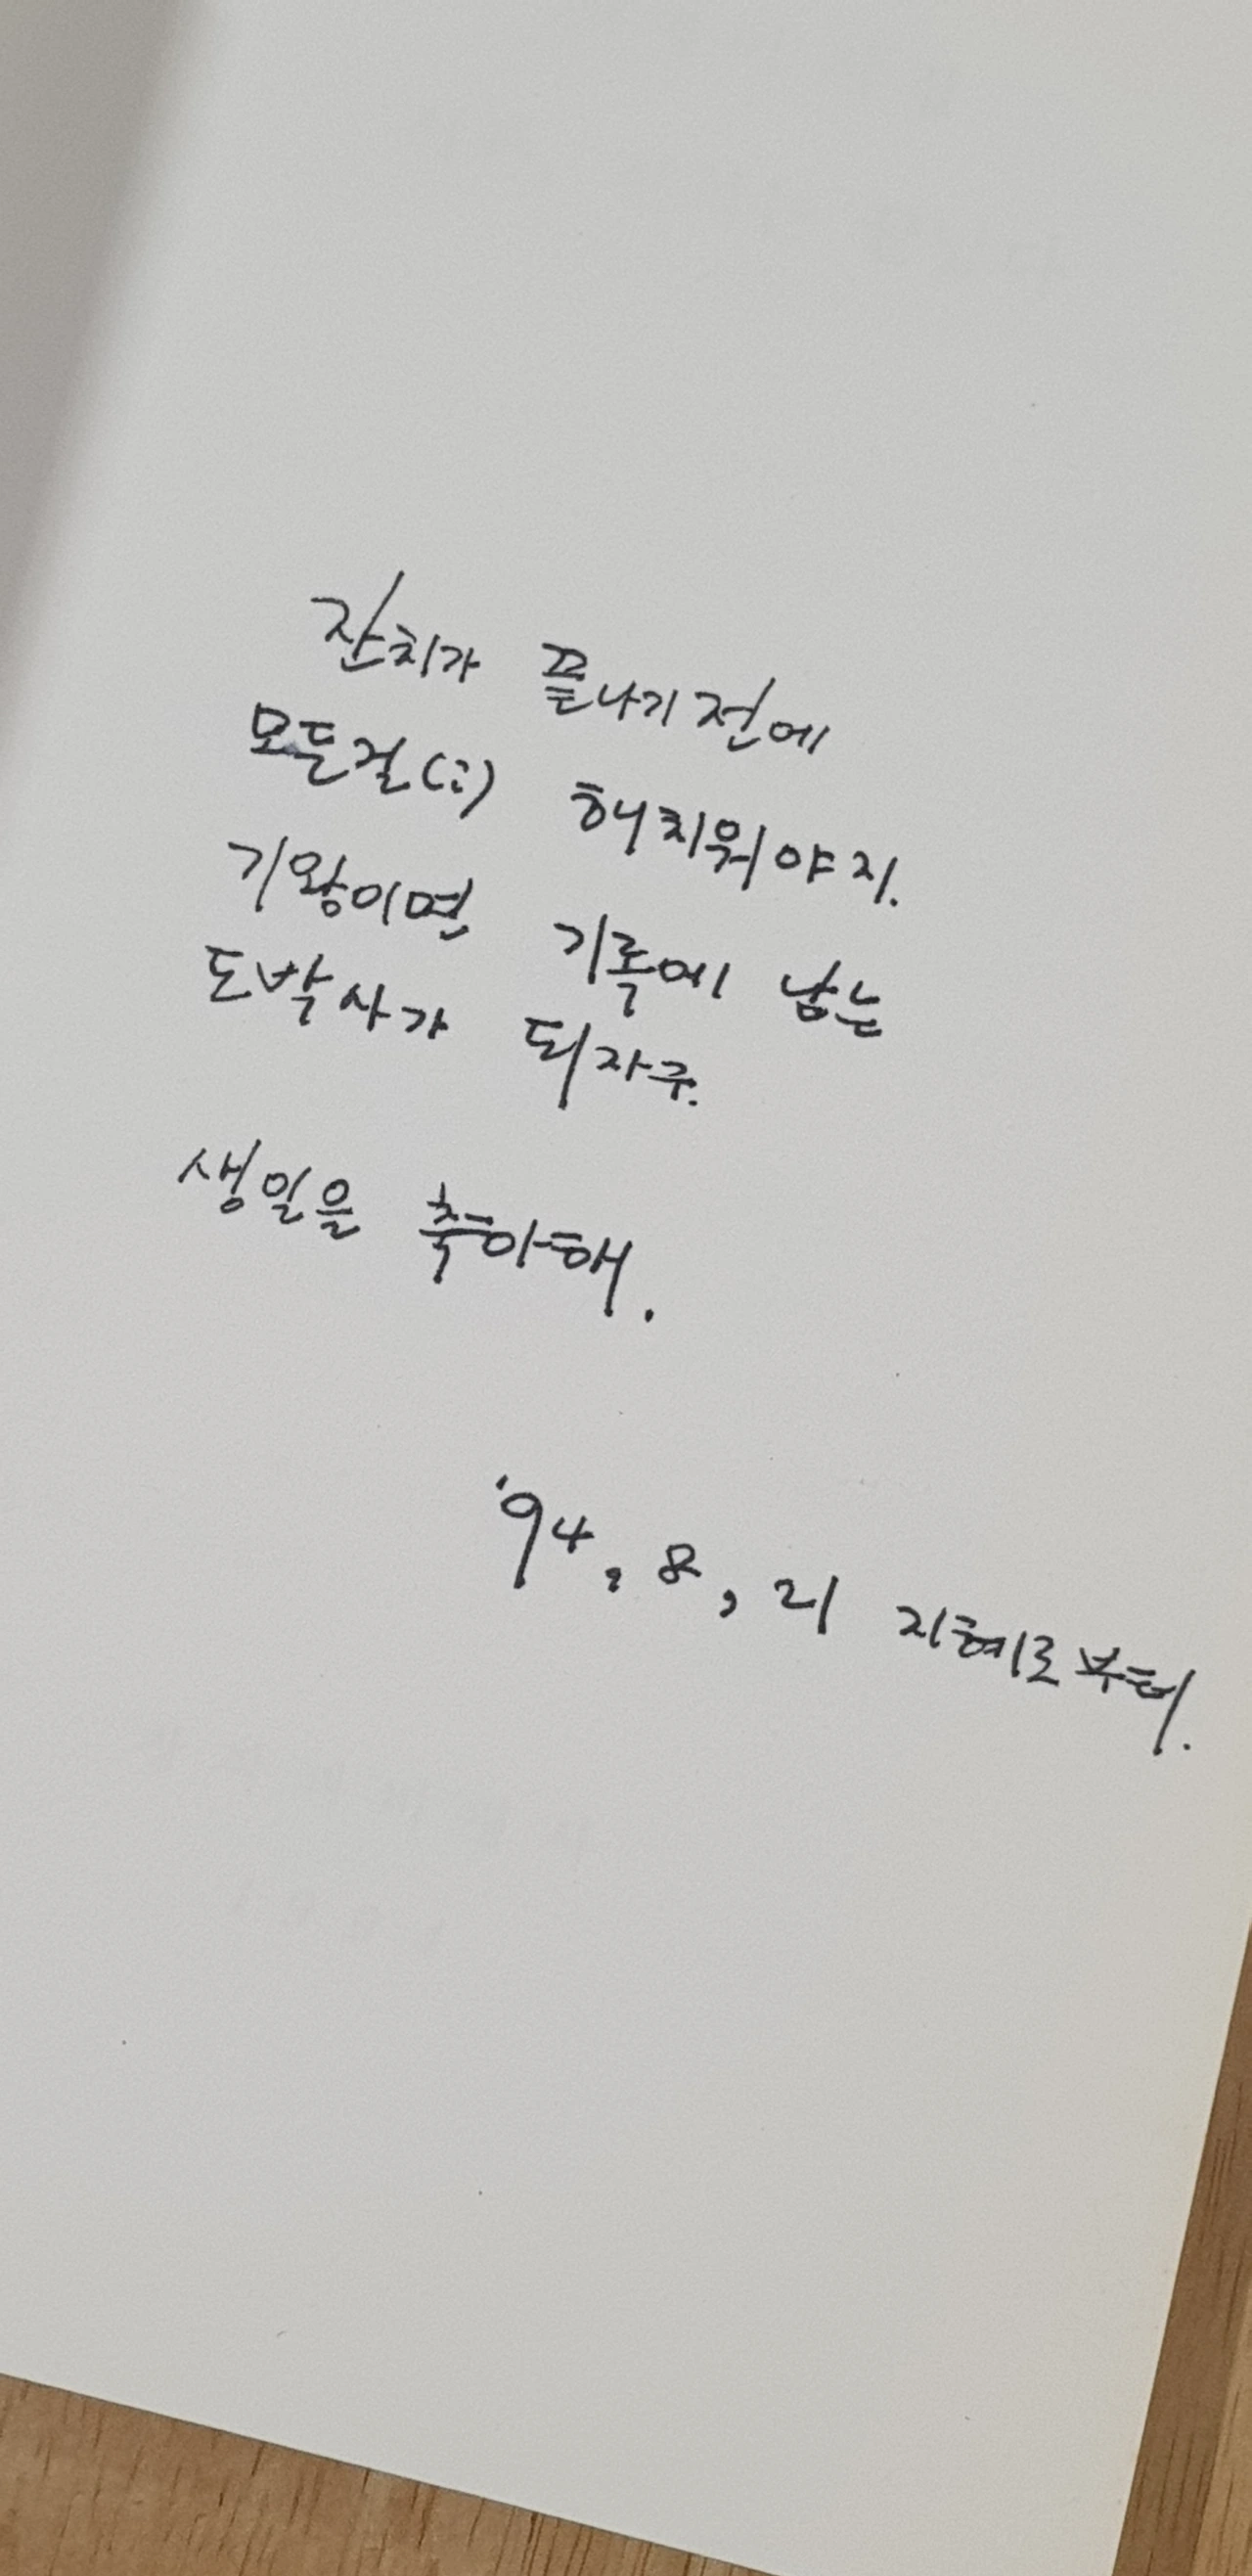 잔치가 끝나기 전에
모든걸(:) 해치워야지.
기왕이면 기록에 남는
도박사가 되자구.
생일을 축하해.
'94. 8, 21 지혜로부터.